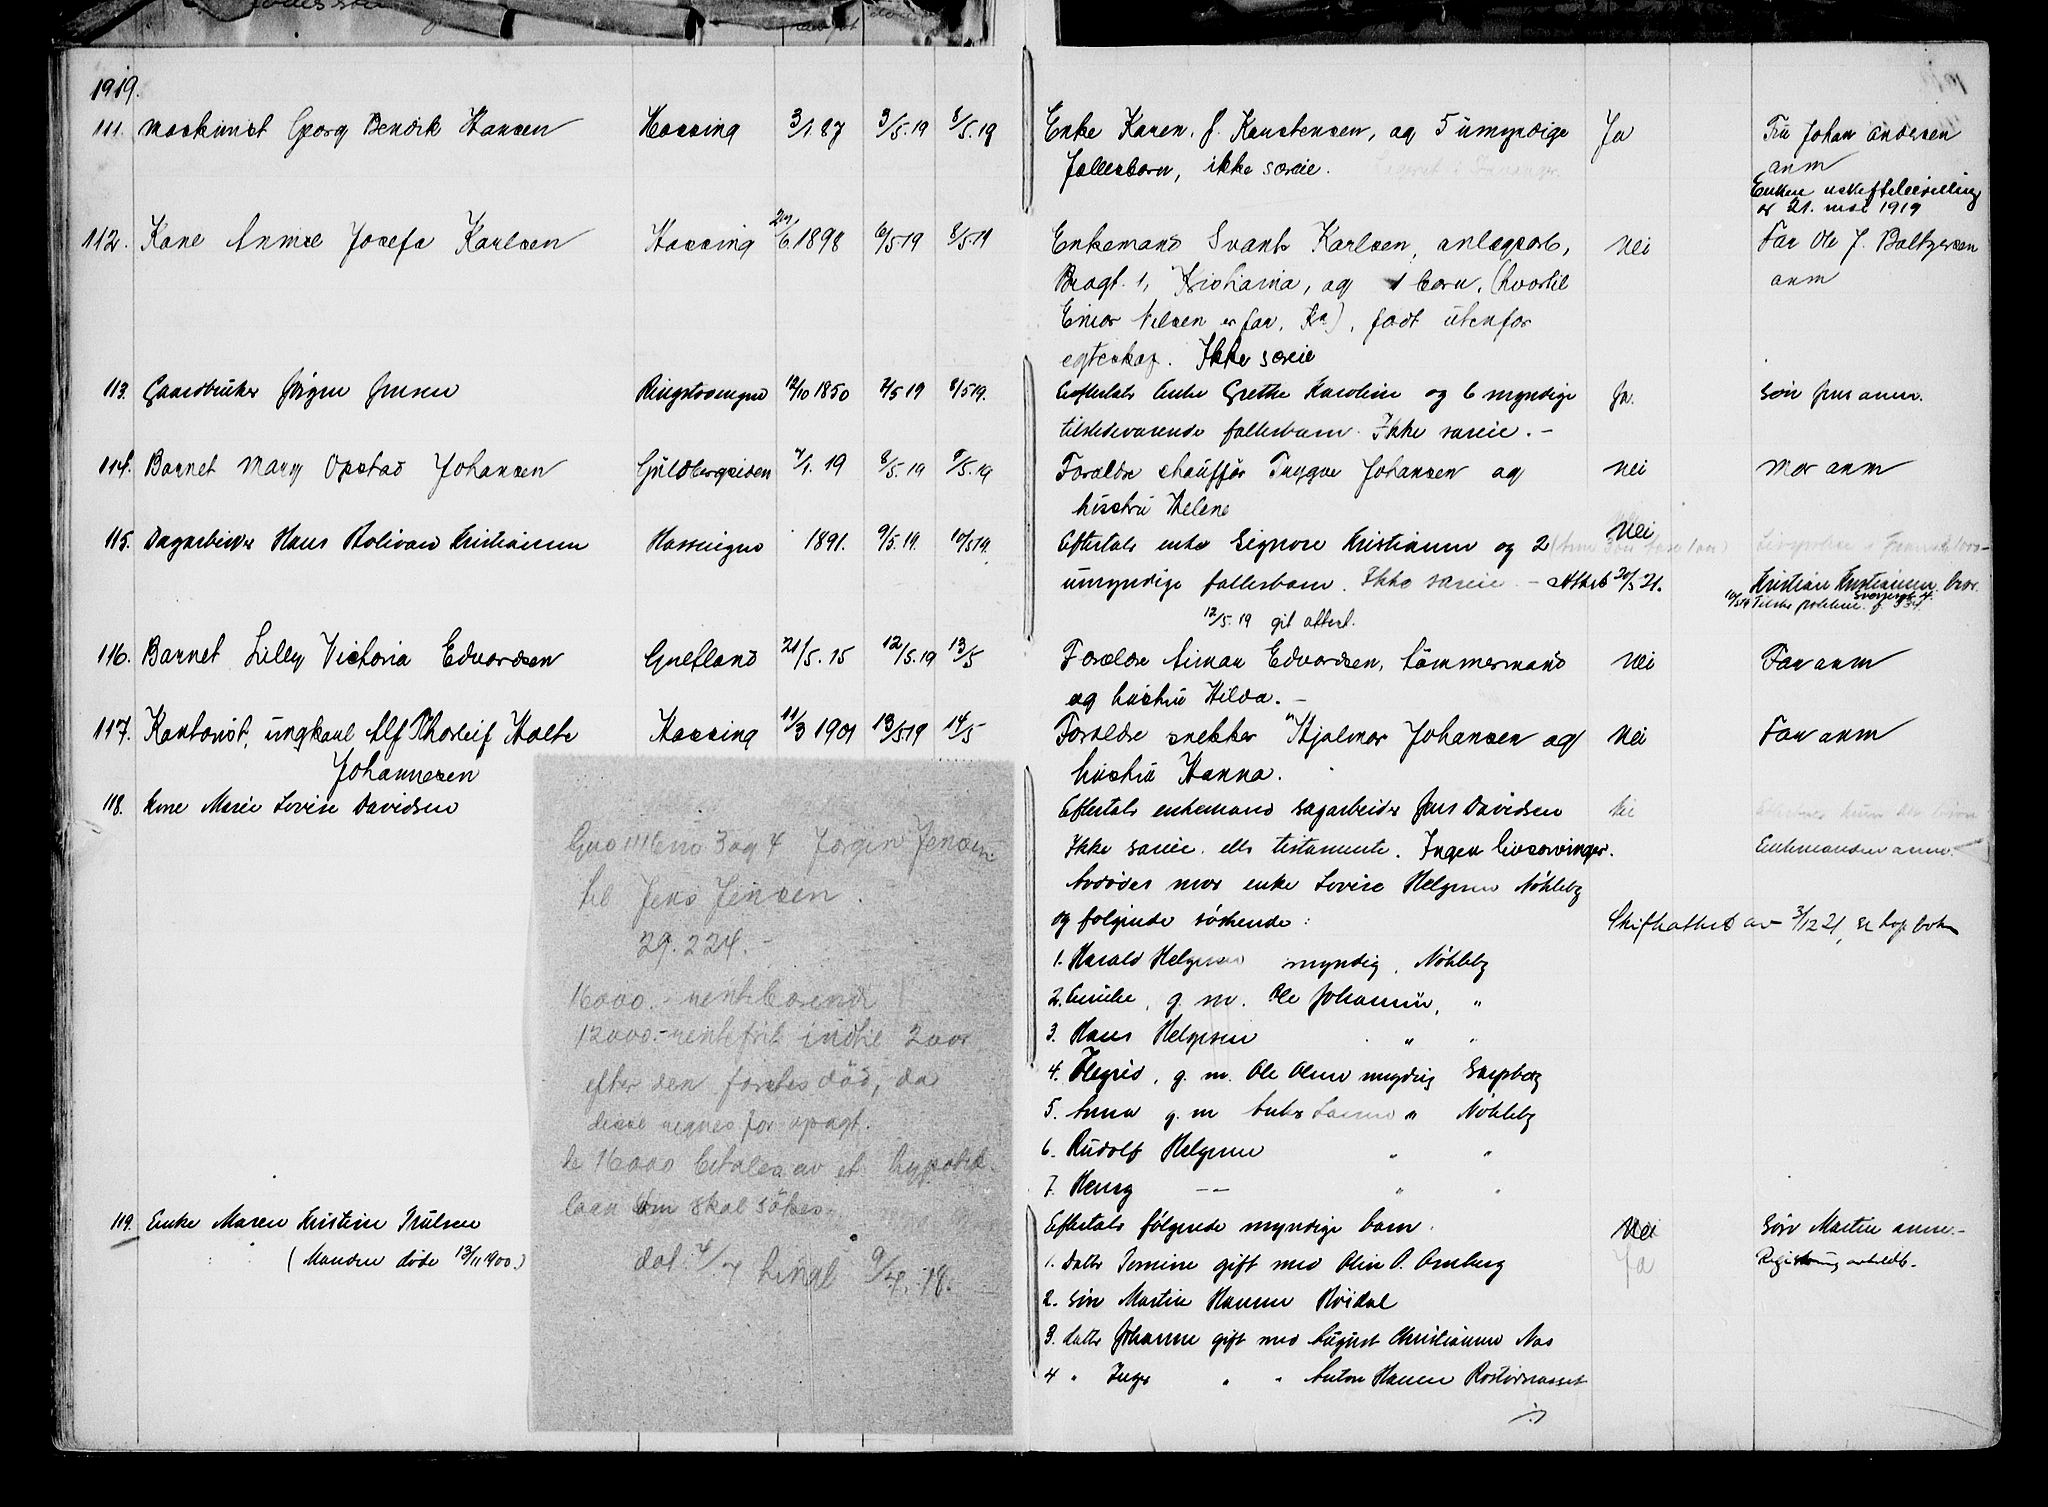 1919.
111. Maskinist Georg Bendik Hansen Hassing 3/1.87 3/5.19 8/5.19 Enke Karen f. Karstensen, og 5 umyndige Ja Tru Johan Andersen
fællesbarn, ikke særeie. anm
Enken uskiftebevilling
av 21. mai 1919
112. Kone Annie Josefe Karlsen Hassing 6.1898 6/5 19 8/5 19 Enkemand Svante Karlsen, anlægsarb, Nei Far Ole J. Baltzersen
Bragt. 1, Kristiania, og 1 barn, (hvortil anm
Einar Nilsen er far, Kra), født utenfor
egteskap. Ikke særeie
113. Gaardbruker Jørgen Jensen Ringstadengen 12/10 1850 7/5 19 8/5 19. Efterlate enke Grethe Karoline og 6 myndige Ja. Søn Jens anm.
tilstedeværende fællesbarn. Ikke særeie. –
114. Barnet Mary Opstad Johansen Guldbergsiden 7/1. 19 8/5. 19 9/5. 19 Forældre chauffør Trygve Johansen og Nei Mor anm
hustru Helene
115. Dagarbeider Hans Bolivar Kristiansen Hassingen 1891. 9/5. 19. 10/5 19. Efterlate enke Signora Kristiansen og 2 Nei
umyndige fællesbarn. Ikke særeie – Attest 20/5 21. Kristian Kristiansen bror.
12/5. 19 git attest.
116. Barnet Lilly Victoria Edvardsen Gretland 21/5. 15 12/5. 19 13/5 Forældre Einar Edvardsen, tømmermand Nei Far anm
og hustru Hilda. –
117. Kontorist, ungkarl Alf Thorleif Holte Hassing 11/3 1901 13/5 19 14/5 Forældre snekker Hjalmar Johansen og Nei Far anm
Johannesen hustru Hanna.
118. Kone Marie Lovise Davidsen Efterlate enkemand sagarbeider Jens Davidsen Nei
Ikke særeie ell. testamente. Ingen livsarvinger. Enkemanden anm.
Avdødes mor enke Lovise Helgesen Nøkleby
og følgende søskende: Skifteattest av 3/12 21, se kop. bok
1. Harald Helgesen myndig, Nøkleby
2. Emilie, g. m. Ole Johansen, "
3. Hans Helgesen " "
4. g. m. Ole Olsen myndig Sarpsborg
5. Anna g. m " Nøkleby
6. Rudolf Helgesen " "
7. Henry – – " "
119. Enke Maren Kristine Trulsen Efterlate følgende myndige barn. Nei Søn Martin anm. –
(Manden døde 13/11 1900.) 1. datter gift med Olin A. Ja
2. søn Martin Hansen Röidal
3. datter Johanne gift med August Kristiansen Næs
4 " Inger " " Anton Hansen
Gno 111 bno 3 og 4 Jørgen Jensen
til Jens Jensen.
29.224. –
16000. – rentebærende
12000. – rentefrit indtil 2 aar
efter den førstes død, da
disse regnes for opagt.
de 16000 betales av et hypotek-
laan som skal søkes.
dat. 4/7 tingl 9/7. 18. –